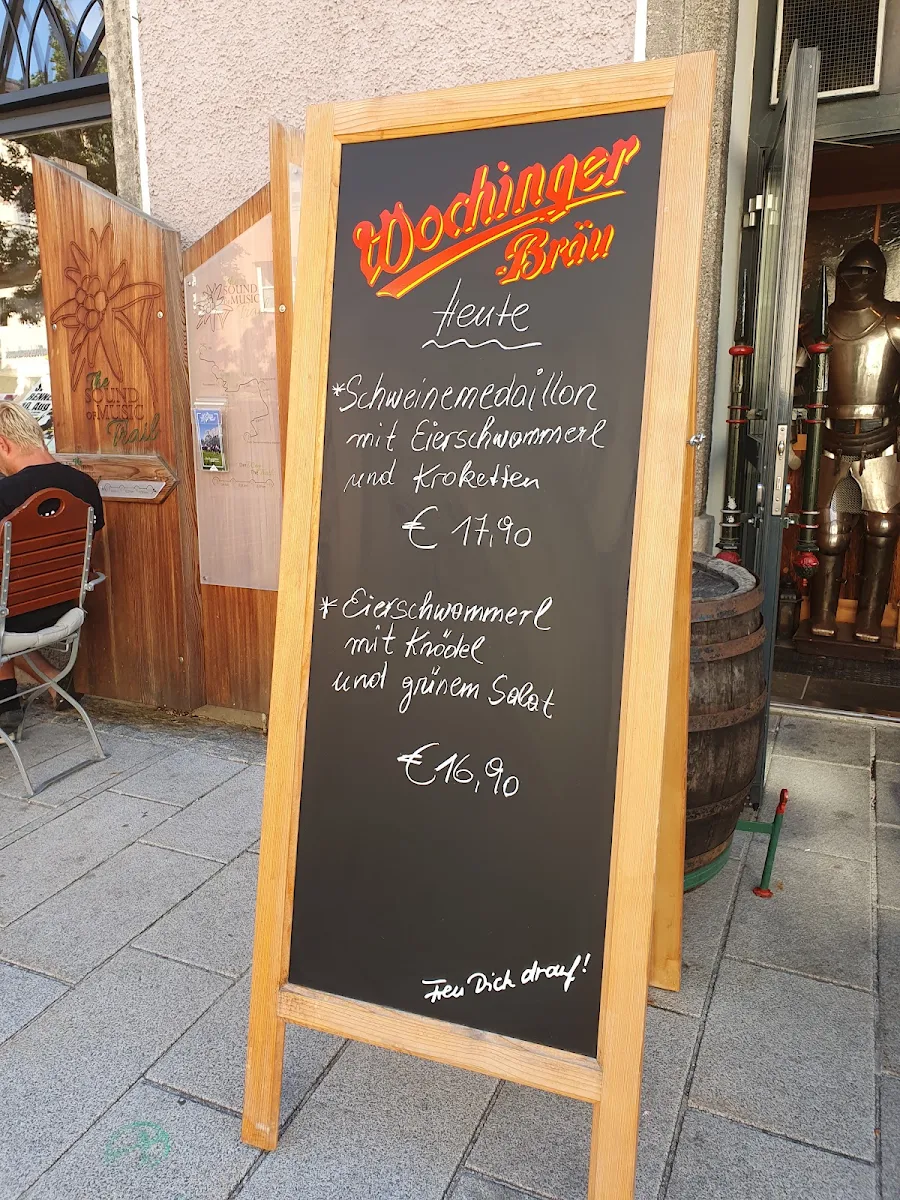 Wochinger
Bräu
Heute
*Schweinemedaillon
mit Eierschwammerl
und Kroketten
€ 17,90
* Eierschwammerl
mit Knödel
und grünem Salat
€ 16,90
Freu Dich drauf!
The
SOUND
OF MUSIC
Trail
SOUND
OF MUSIC